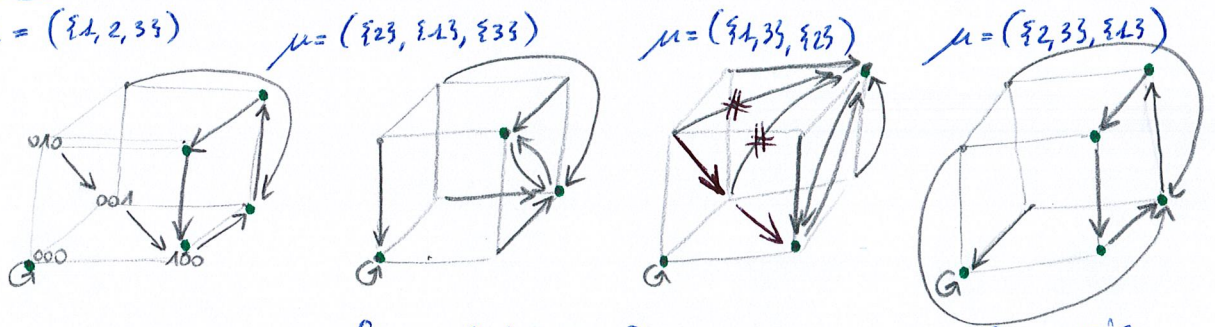 = ({1,2,3})
μ= ({2}, {1}, {3})
μ= ({1,3}, {2})
μ = ({2,3}, {1})
010
001
000
100
G
G
G
G